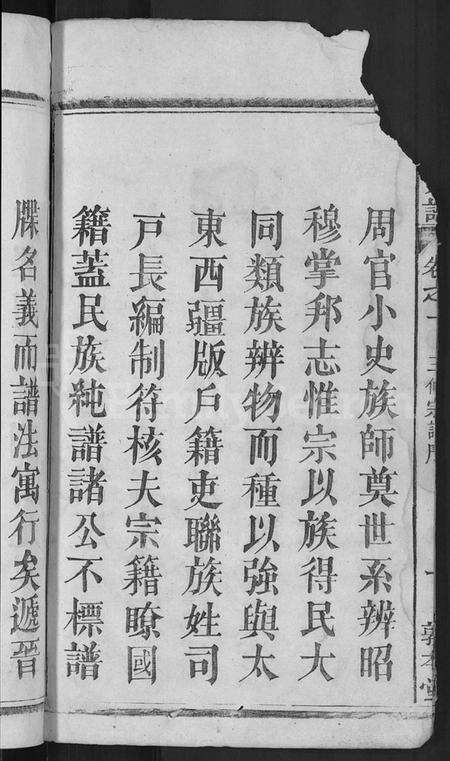 譜
卷之一
三修宗譜序
一
敦本堂
周官小史族師奠世系辨昭
穆掌邦志惟宗以族得民大
同類族辨物而種以強與太
東西疆版戶籍吏聯族姓司
戸長編制符核夫宗籍瞭國
籍蓋民族純譜諸公不標譜
牒名義而譜法寓行矣遞晉